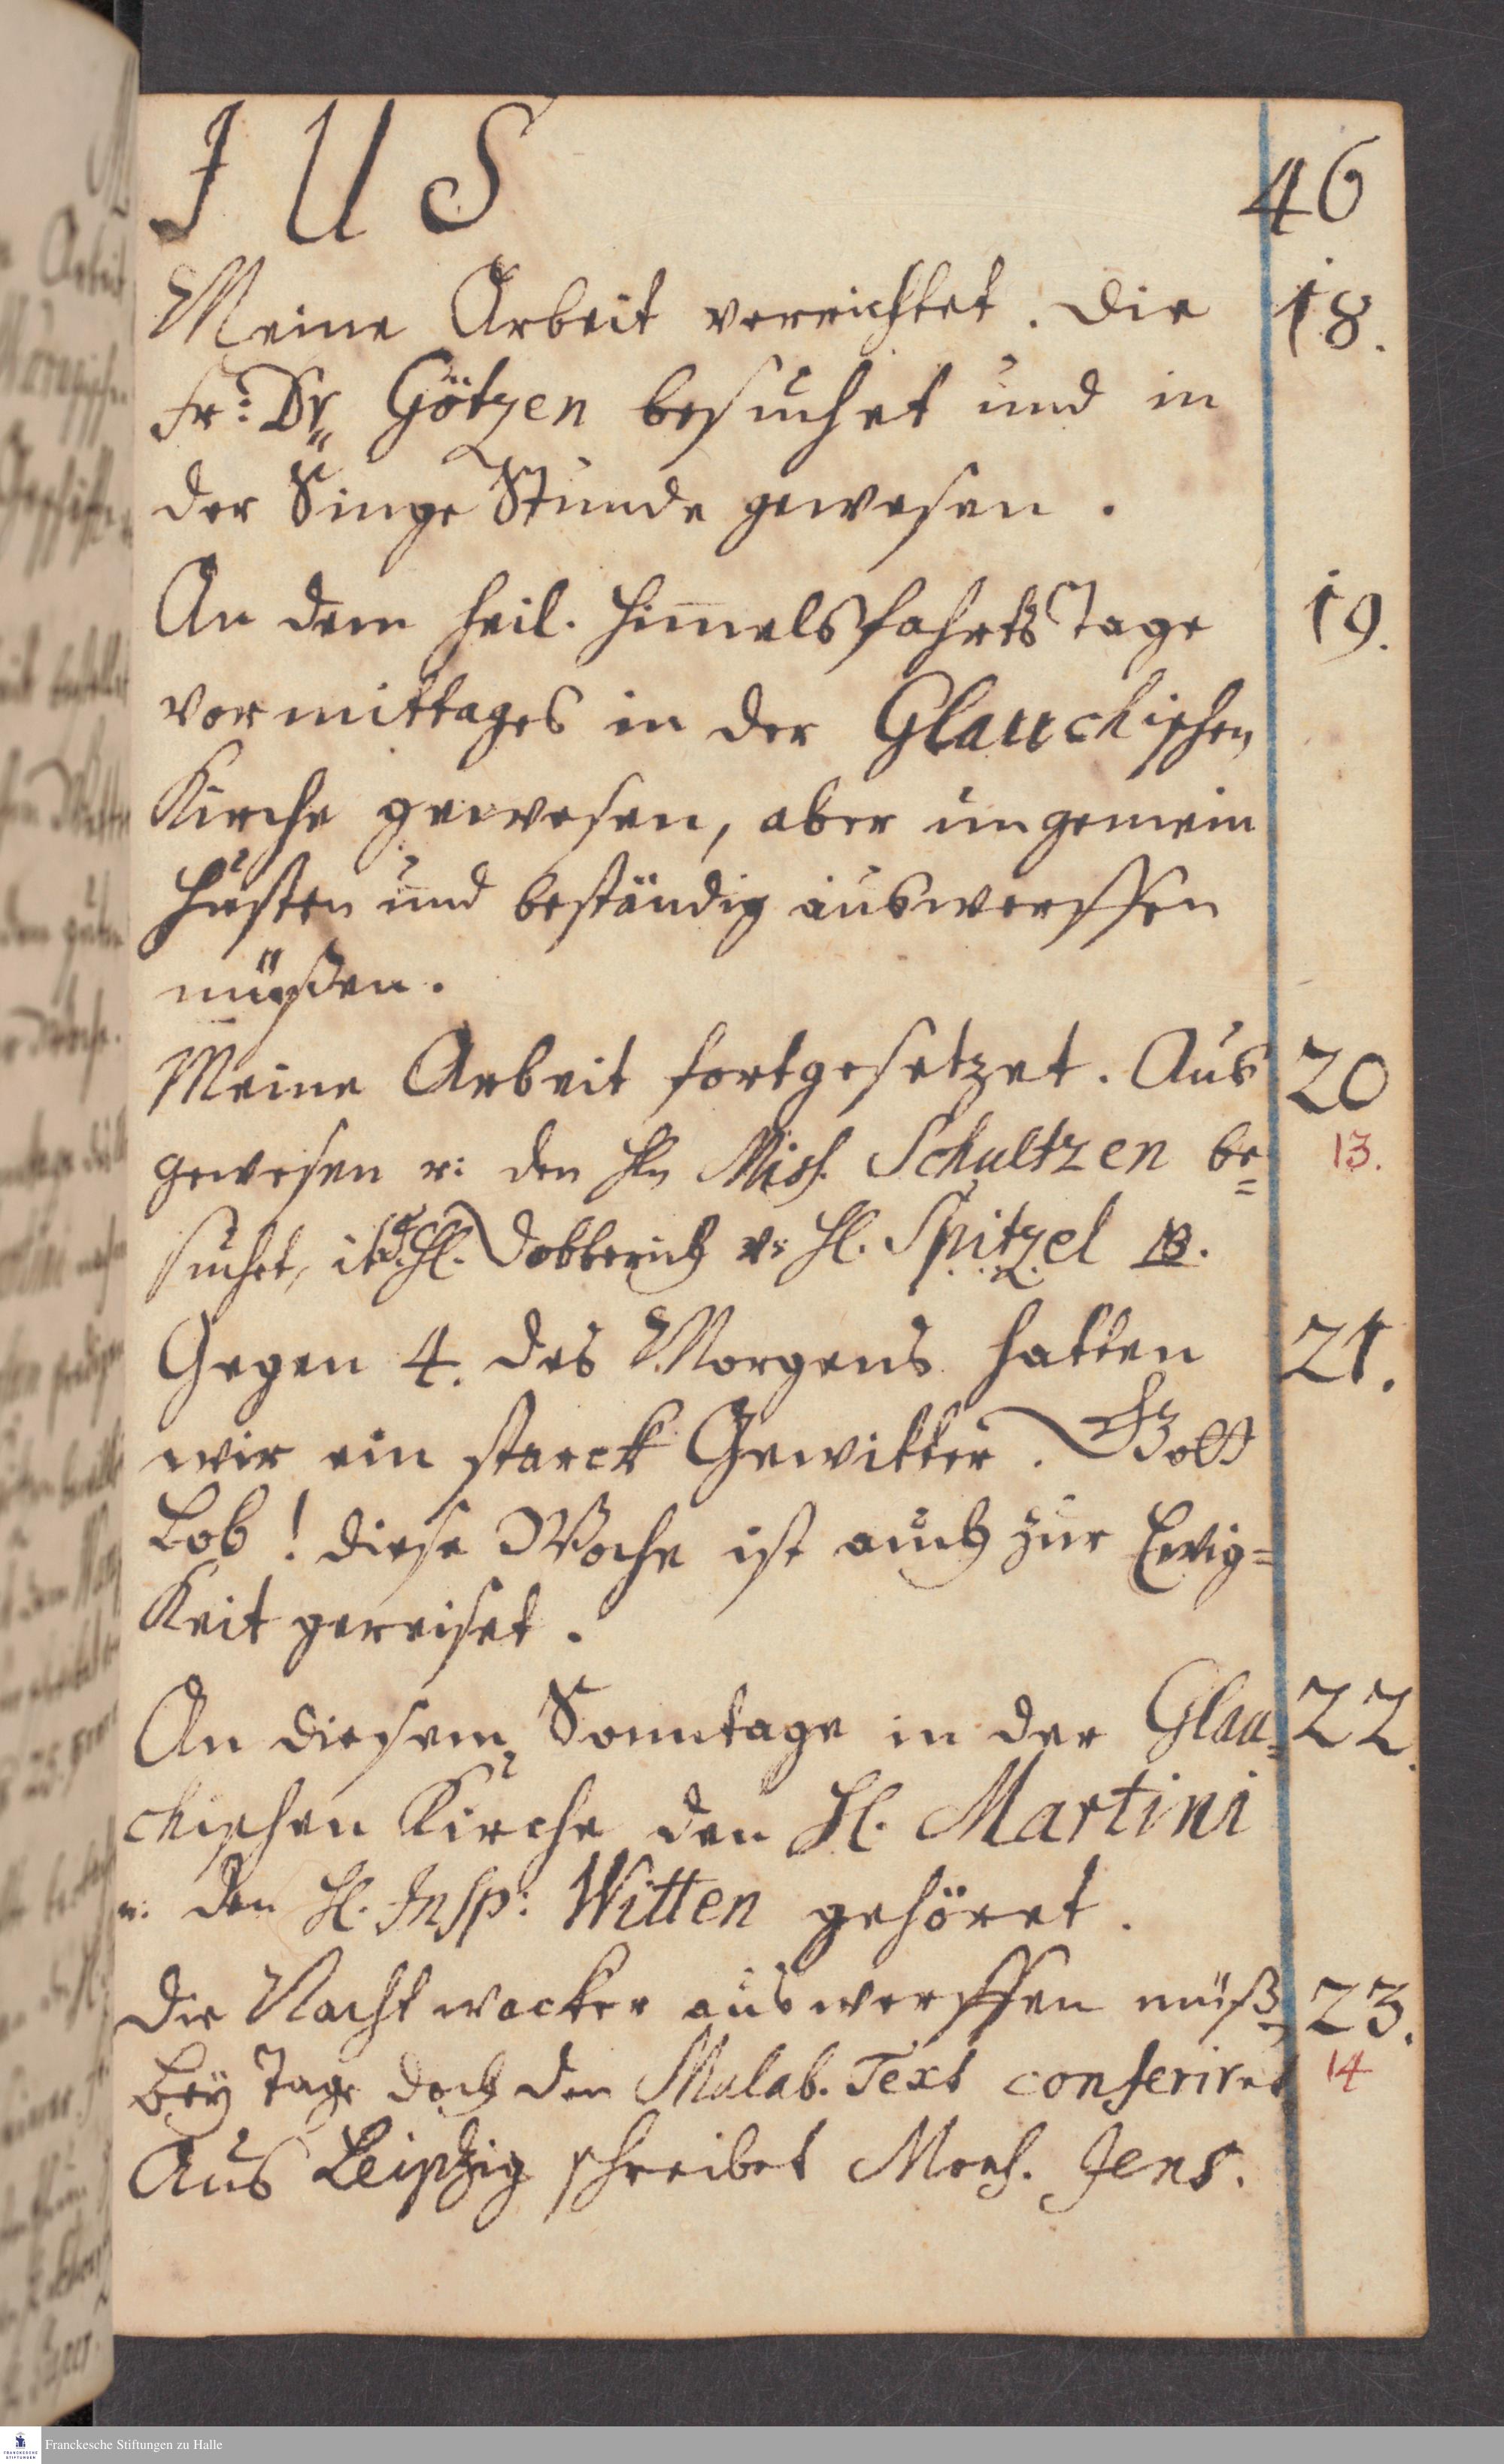 IUS 46
Meine Arbeit verrichtet. Die 18.
Fr: Dr. Götzen besuchet und in
der Singe Stunde gewesen.
An dem heil. Him̅elsfahrts Tage 19.
vormittages in der Glauchischen
Kirche gewesen, aber ungemein
husten und beständig auswerffen
müßen.
Meine Arbeit fortgesetzet. Aus 20
gewesen u: den Hn Miss. Schultzen be= 13.
suchet, it. d. H. Dobberich u: H. Spitzel
Gegen 4. des Morgens hatten 21.
wir ein starck Gewitter. Gott
Lob! diese Woche ist auch zur Ewig=
keit gereiset.
An diesem Sonntage in der Glau= 22.
chischen Kirche den H. Martini
u: den H. Insp: Witten gehöret.
Die Nacht wacker auswerffen müß 23.
Bey Tage doch den Malab. Text conferiret 14
Aus Leipzig schreibet Mons. Jens.
Franckesche Stiftungen zu Halle